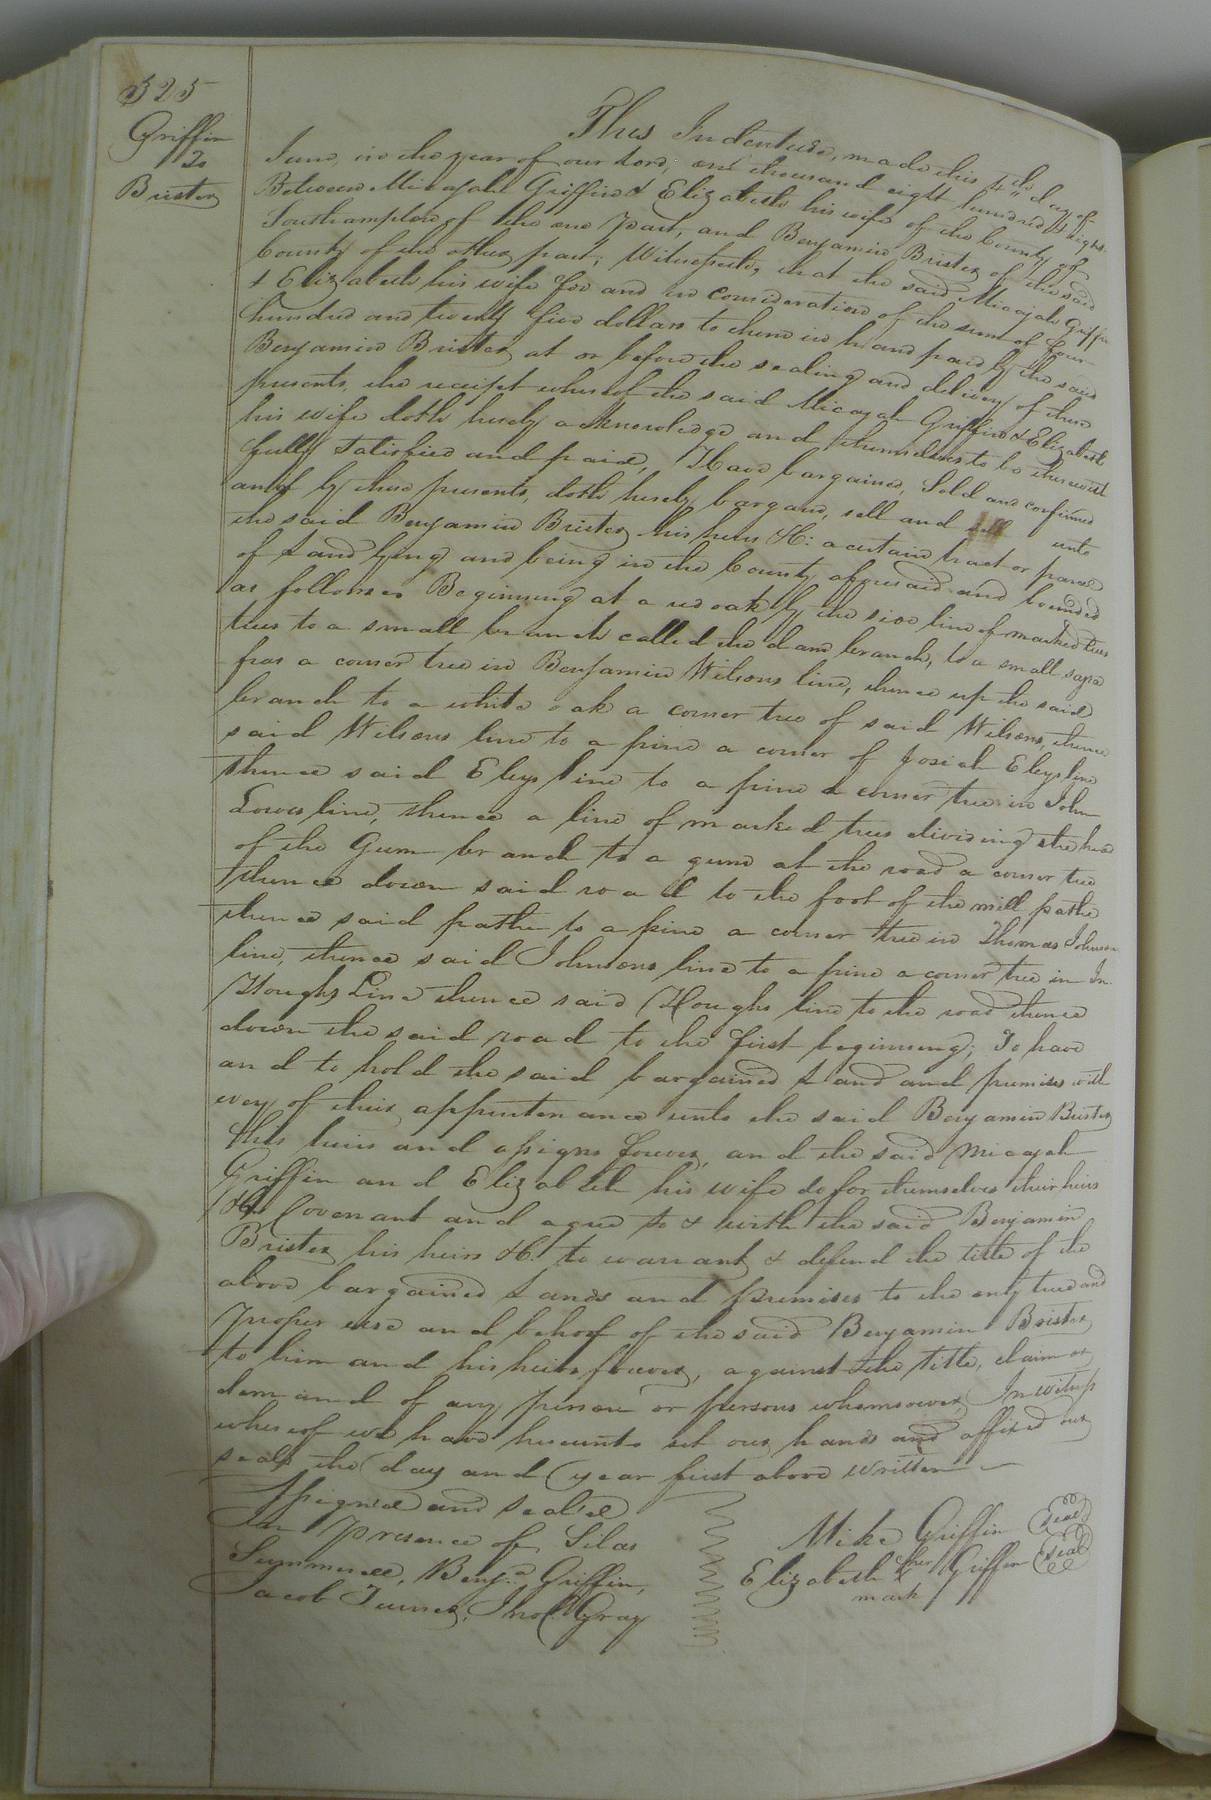 525
Griffin
To
Brister
This Indenture, made this 4th day of
June, in the year of our Lord, one thousand eight hundred & eight
Between Micajah Griffin & Elizabeth his wife of the County of
Southampton of the one part, and Benjamin Brister of the said
County of the other part, Witnesseth, that the said Micajah Griffin
& Elizabeth his wife for and in consideration of the sum of four
hundred and twenty five dollars to them in hand paid by the said
Benjamin Brister at or before the sealing and delivery of these
presents, the receipt whereof the said Micajah Griffin & Elizabeth
his wife doth hereby acknowledge and themselves to be therewith
fully Satisfied and paid, Have bargained, Sold and confirmed
and by these presents, doth hereby bargain, sell and unto
the said Benjamin Brister his heirs &C: a certain tract or parcel
of Land lying and being in the County aforesaid and bounded
as follows Beginning at a red oak by the side line of marked trees
trees to a small branch called the dam branch, to a small sapa
fras a corner tree in Benjamin Wilsons line, thence up the said
branch to a white oak a corner tree of said Wilsons, thence
said Wilsons line to a pine a corner of Josiah Eleys line
thence said Eleys line to a pine a corner tree in John
Lowes line, thence a line of marked trees dividing the head
of the Gum branch to a gum at the road a corner tree
thence down said road to the foot of the mill path
thence said path to a pine a corner tree in Thomas Johnson
line, thence said Johnsons line to a pine a corner tree in Jn.
Houghs Line thence said Houghs line to the road thence
down the said road to the first beginning; To have
and to hold the said bargained Land and premises with
every of their appurtenance unto the said Benjamin Brister
his heirs and assigns forever, and the said Micajah
Griffin and Elizabeth his wife do for themselves their heirs
&C Covenant and agree to & with the said Benjamin
Brister his heirs &C. to warrant & defend the title of the
above bargained Lands and premises to the only true and
proper use and behoof of the said Benjamin Brister
to him and his heirs forever, against the title, claim or
demand of any person or persons whomsoever, In witness
whereof we have hereunto set our hands and affixed our
seals the day and year first above written
Assigned and sealed
In presence of, Silas
Summerell, Benja. Griffin,
Jacob Turner, Jno. Gray
Mike Griffin Seal
Elizabeth her X Griffin Seal
mark